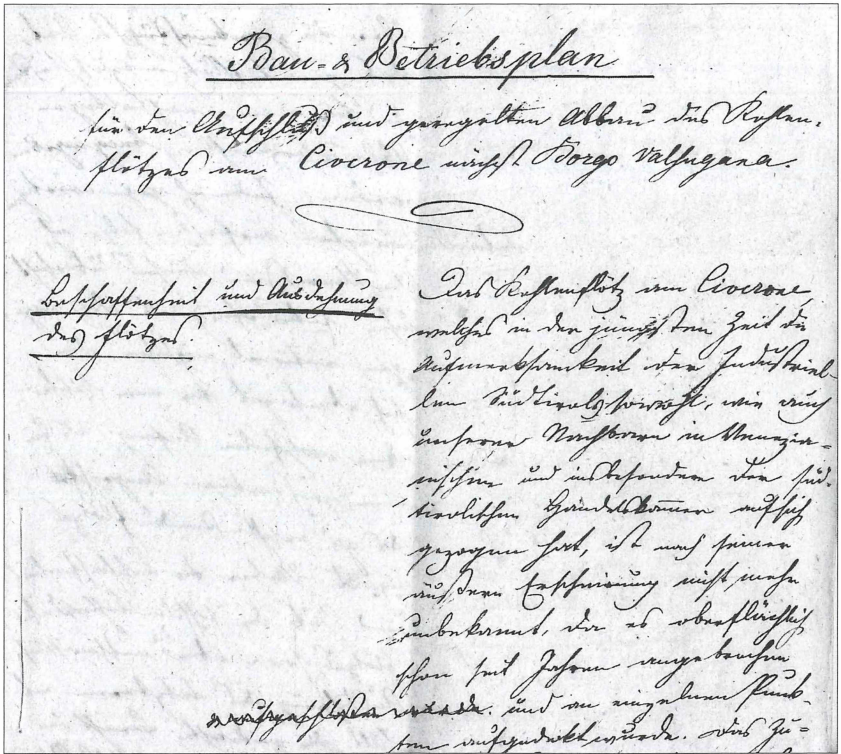 Bau- & Betriebsplan
für den Aufschluß und geregelten Abbau des Kohlen-
flötzes am Civerone nächst Borgo Valsugana.
Beschaffenheit und Ausdehnung
des Flötzes.
Das Kohlenflötz am Civerone,
welches in der jüngsten Zeit die
Aufmerksamkeit der Industriel-
len Südtirols sowohl, wie auch
unserer Nachbarn in Venezia-
nischen und insbesondere der süd-
tirolischen Handelskammer auf sich
gezogen hat, ist nach seiner
äußern Erscheinung nicht mehr
unbekannt, da es oberflächlich
schon seit Jahren angebrochen
aufgeschlossen wurde. und an einzelnen Punk-
ten aufgedeckt wurde. Das Zu-